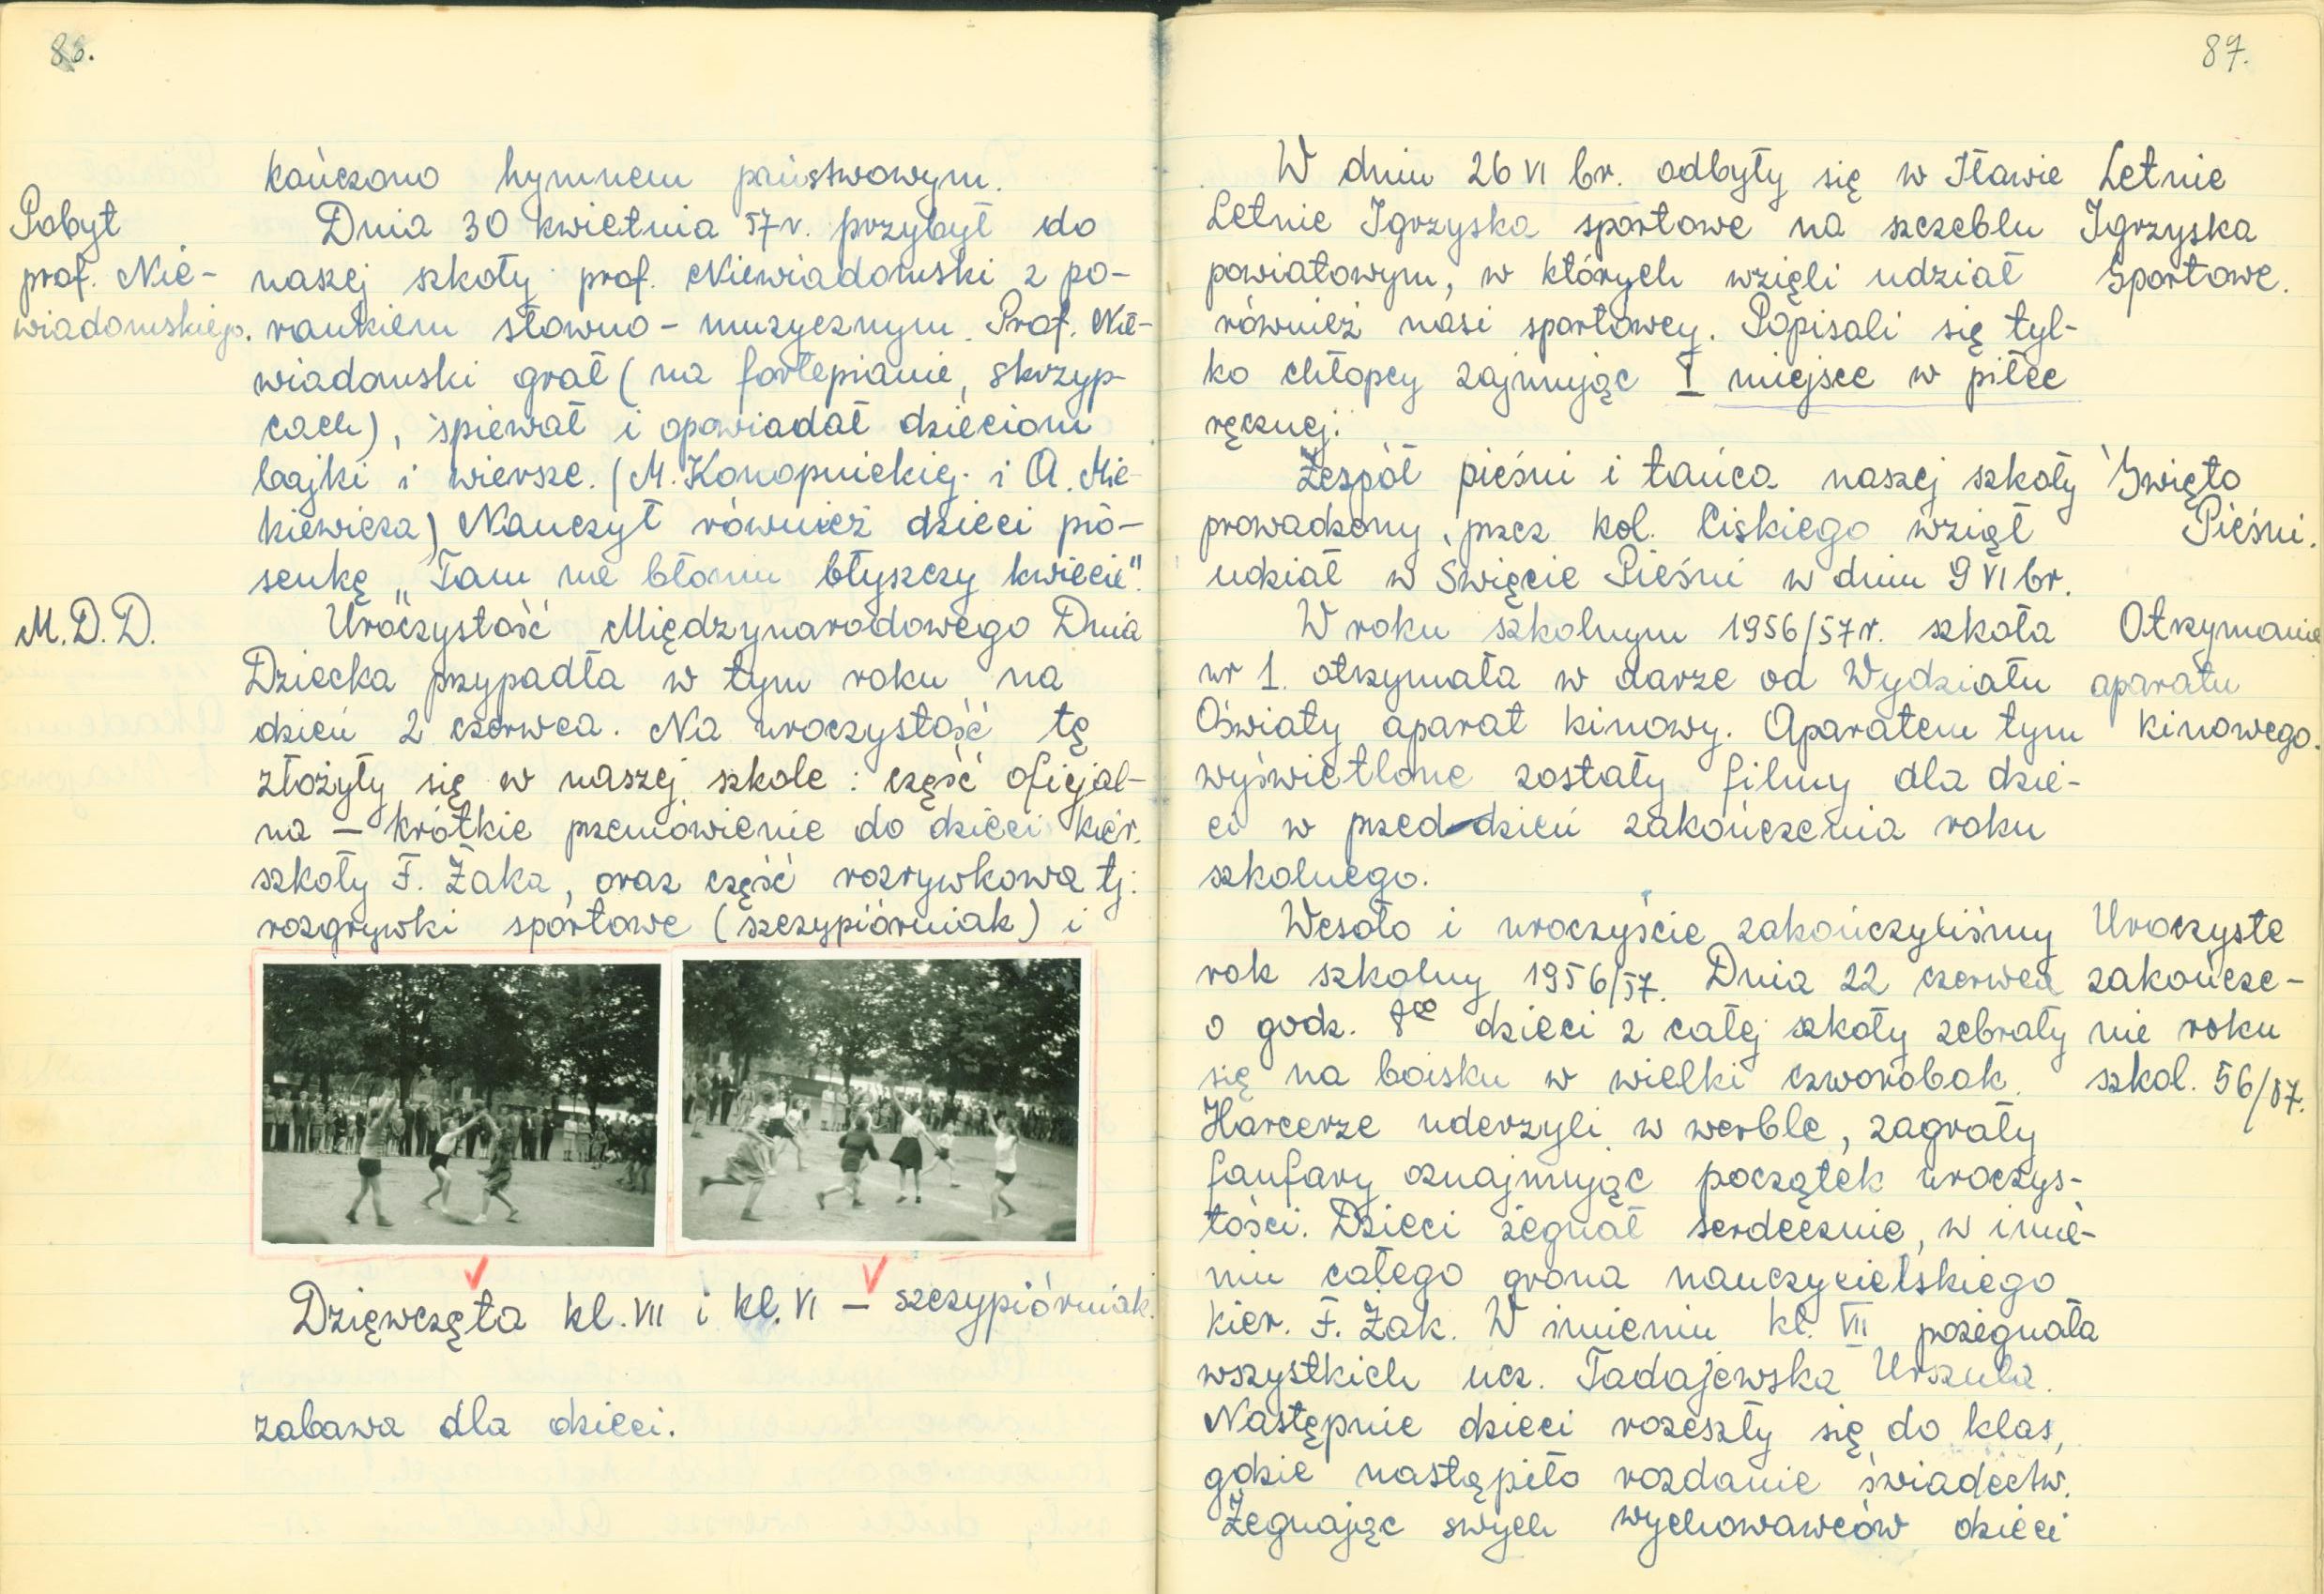 86.
kończono hymnem państwowym.
Pobyt
prof. Nie-
wiadomskiego.
Dnia 30 kwietnia 57 r. przybył do
naszej szkoły prof. Niewiadomski z po-
rankiem słowno - muzycznym. Prof. Nie-
wiadomski grał (na fortepianie, skrzyp-
cach), śpiewał i opowiadał dzieciom
bajki i wiersze. (M. Konopnickiej i A. Mic-
kiewicza) Nauczył również dzieci pio-
senkę „Tam na błoniu błyszczy kwiecie".
M.D.D.
Uroczystość Międzynarodowego Dnia
Dziecka przypadła w tym roku na
dzień 2 czerwca. Na uroczystość tę
złożyły się w naszej szkole : część oficjal-
na — krótkie przemówienie do dzieci kier.
szkoły F. Żaka, oraz część rozrywkowa tj.
rozgrywki sportowe (szczypiórniak) i
Dzięwczęta kl. VII i kl. VI — szczypiórniak.
zabawa dla dzieci.
87.
W dniu 26 VI br. odbyły się w Iławie
Letnie Igrzyska sportowe na szczeblu
powiatowym, w których wzięli udział
również nasi sportowcy. Popisali się tyl-
ko chłopcy zajmując I miejsce w piłce
ręcznej.
Letnie
Igrzyska
Sportowe.
Zespół pieśni i tańca naszej szkoły
prowadzony przez kol. Ciskiego wziął
udział w Święcie Pieśni w dniu 9 VI br.
Święto
Pieśni.
W roku szkolnym 1956/57 r. szkoła
nr 1. otrzymała w darze od Wydziału
Oświaty aparat kinowy. Aparatem tym
wyświetlone zostały filmy dla dzie-
ci w przeddzień zakończenia roku
szkolnego.
Otrzymanie
aparatu
kinowego.
Wesoło i uroczyście zakończyliśmy
rok szkolny 1956/57. Dnia 22 czerwca
o godz. 8⁰⁰ dzieci z całej szkoły zebrały
się na boisku w wielki czworobok.
Harcerze uderzyli w werble, zagrały
fanfary oznajmując początek uroczys-
tości. Dzieci żegnał serdecznie, w imie-
niu całego grona nauczycielskiego
kier. F. Żak. W imieniu kl. VII pożegnała
wszystkich ucz. Tadajewska Urszula.
Następnie dzieci rozeszły się do klas,
gdzie nastąpiło rozdanie świadectw.
Żegnając swych wychowawców dzieci
Uroczyste
zakończe-
nie roku
szkol. 56/57.